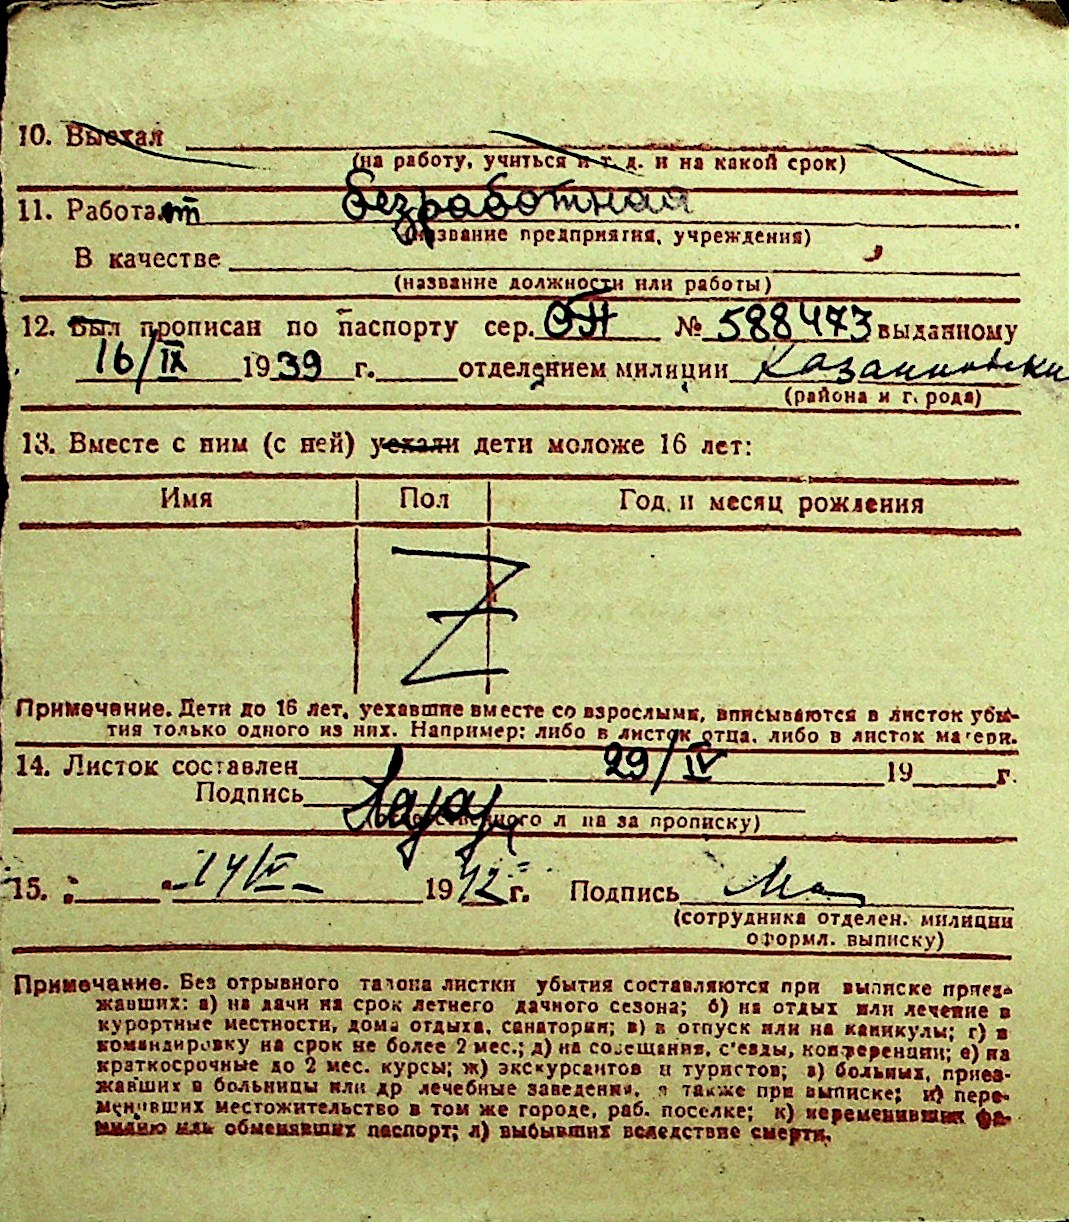 10. Выехал
(на работу, учиться и т. д. и на какой срок)
11. Работает безработная
(название предприятия, учреждения)
В качестве
(название должности или работы)
12. Был прописан по паспорту сер. ОП № 588473 выданному
16/IX 1939 г. отделением милиции
(района и города)
13. Вместе с ним (с ней) уехали дети моложе 16 лет:
Имя Пол Год и месяц рождения
Z
Примечание. Дети до 16 лет, уехавшие вместе со взрослыми, вписываются в листок убы-
тия только одного из них. Например: либо в листок отца, либо в листок матери.
14. Листок составлен 29/IV 19 г.
Подпись
(ответственного лица за прописку)
15. 14/V 1942 г. Подпись
(сотрудника отделен. милиции
оформл. выписку)
Примечание. Без отрывного талона листки убытия составляются при выписке приез-
жавших: а) на дачи на срок летнего дачного сезона; б) на отдых или лечение в
курортные местности, дома отдыха, санатории; в) в отпуск или на каникулы; г) в
командировку на срок не более 2 мес.; д) на совещания, с'езды, конференции; е) на
краткосрочные до 2 мес. курсы; ж) экскурсантов и туристов; з) больных, приез-
жавших в больницы или др лечебные заведения, а также при выписке; и) пере-
менивших местожительство в том же городе, раб. поселке; к) переменивших фа-
милию иль обменявших паспорт; л) выбывших вследствие смерти.